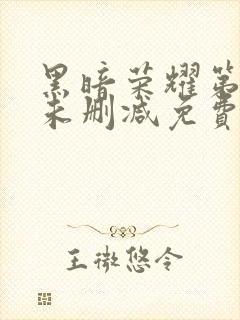 黑暗荣耀第
未删减免費
王微悠令